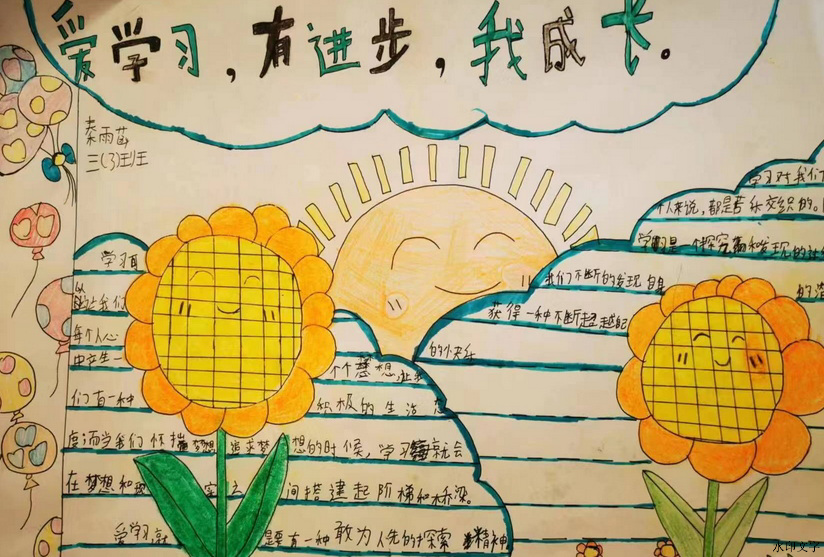 爱学习,有进步,我成长。
秦雨苗
三(3)班
学习对我们
个人来说,都是苦乐交织的。
学习是一个探究和发现的
我们不断的发现自
获得一种不断超越
的小快乐
学习
让我们
每个人心
中产生一个梦想,让
们有一种积极的生活态
度而当我们怀揣梦想追求梦想的时候,学习就会
在梦想和现实之间搭建起阶梯和桥梁。
爱学习就是要有一种敢为人先的探索精神
水印文字